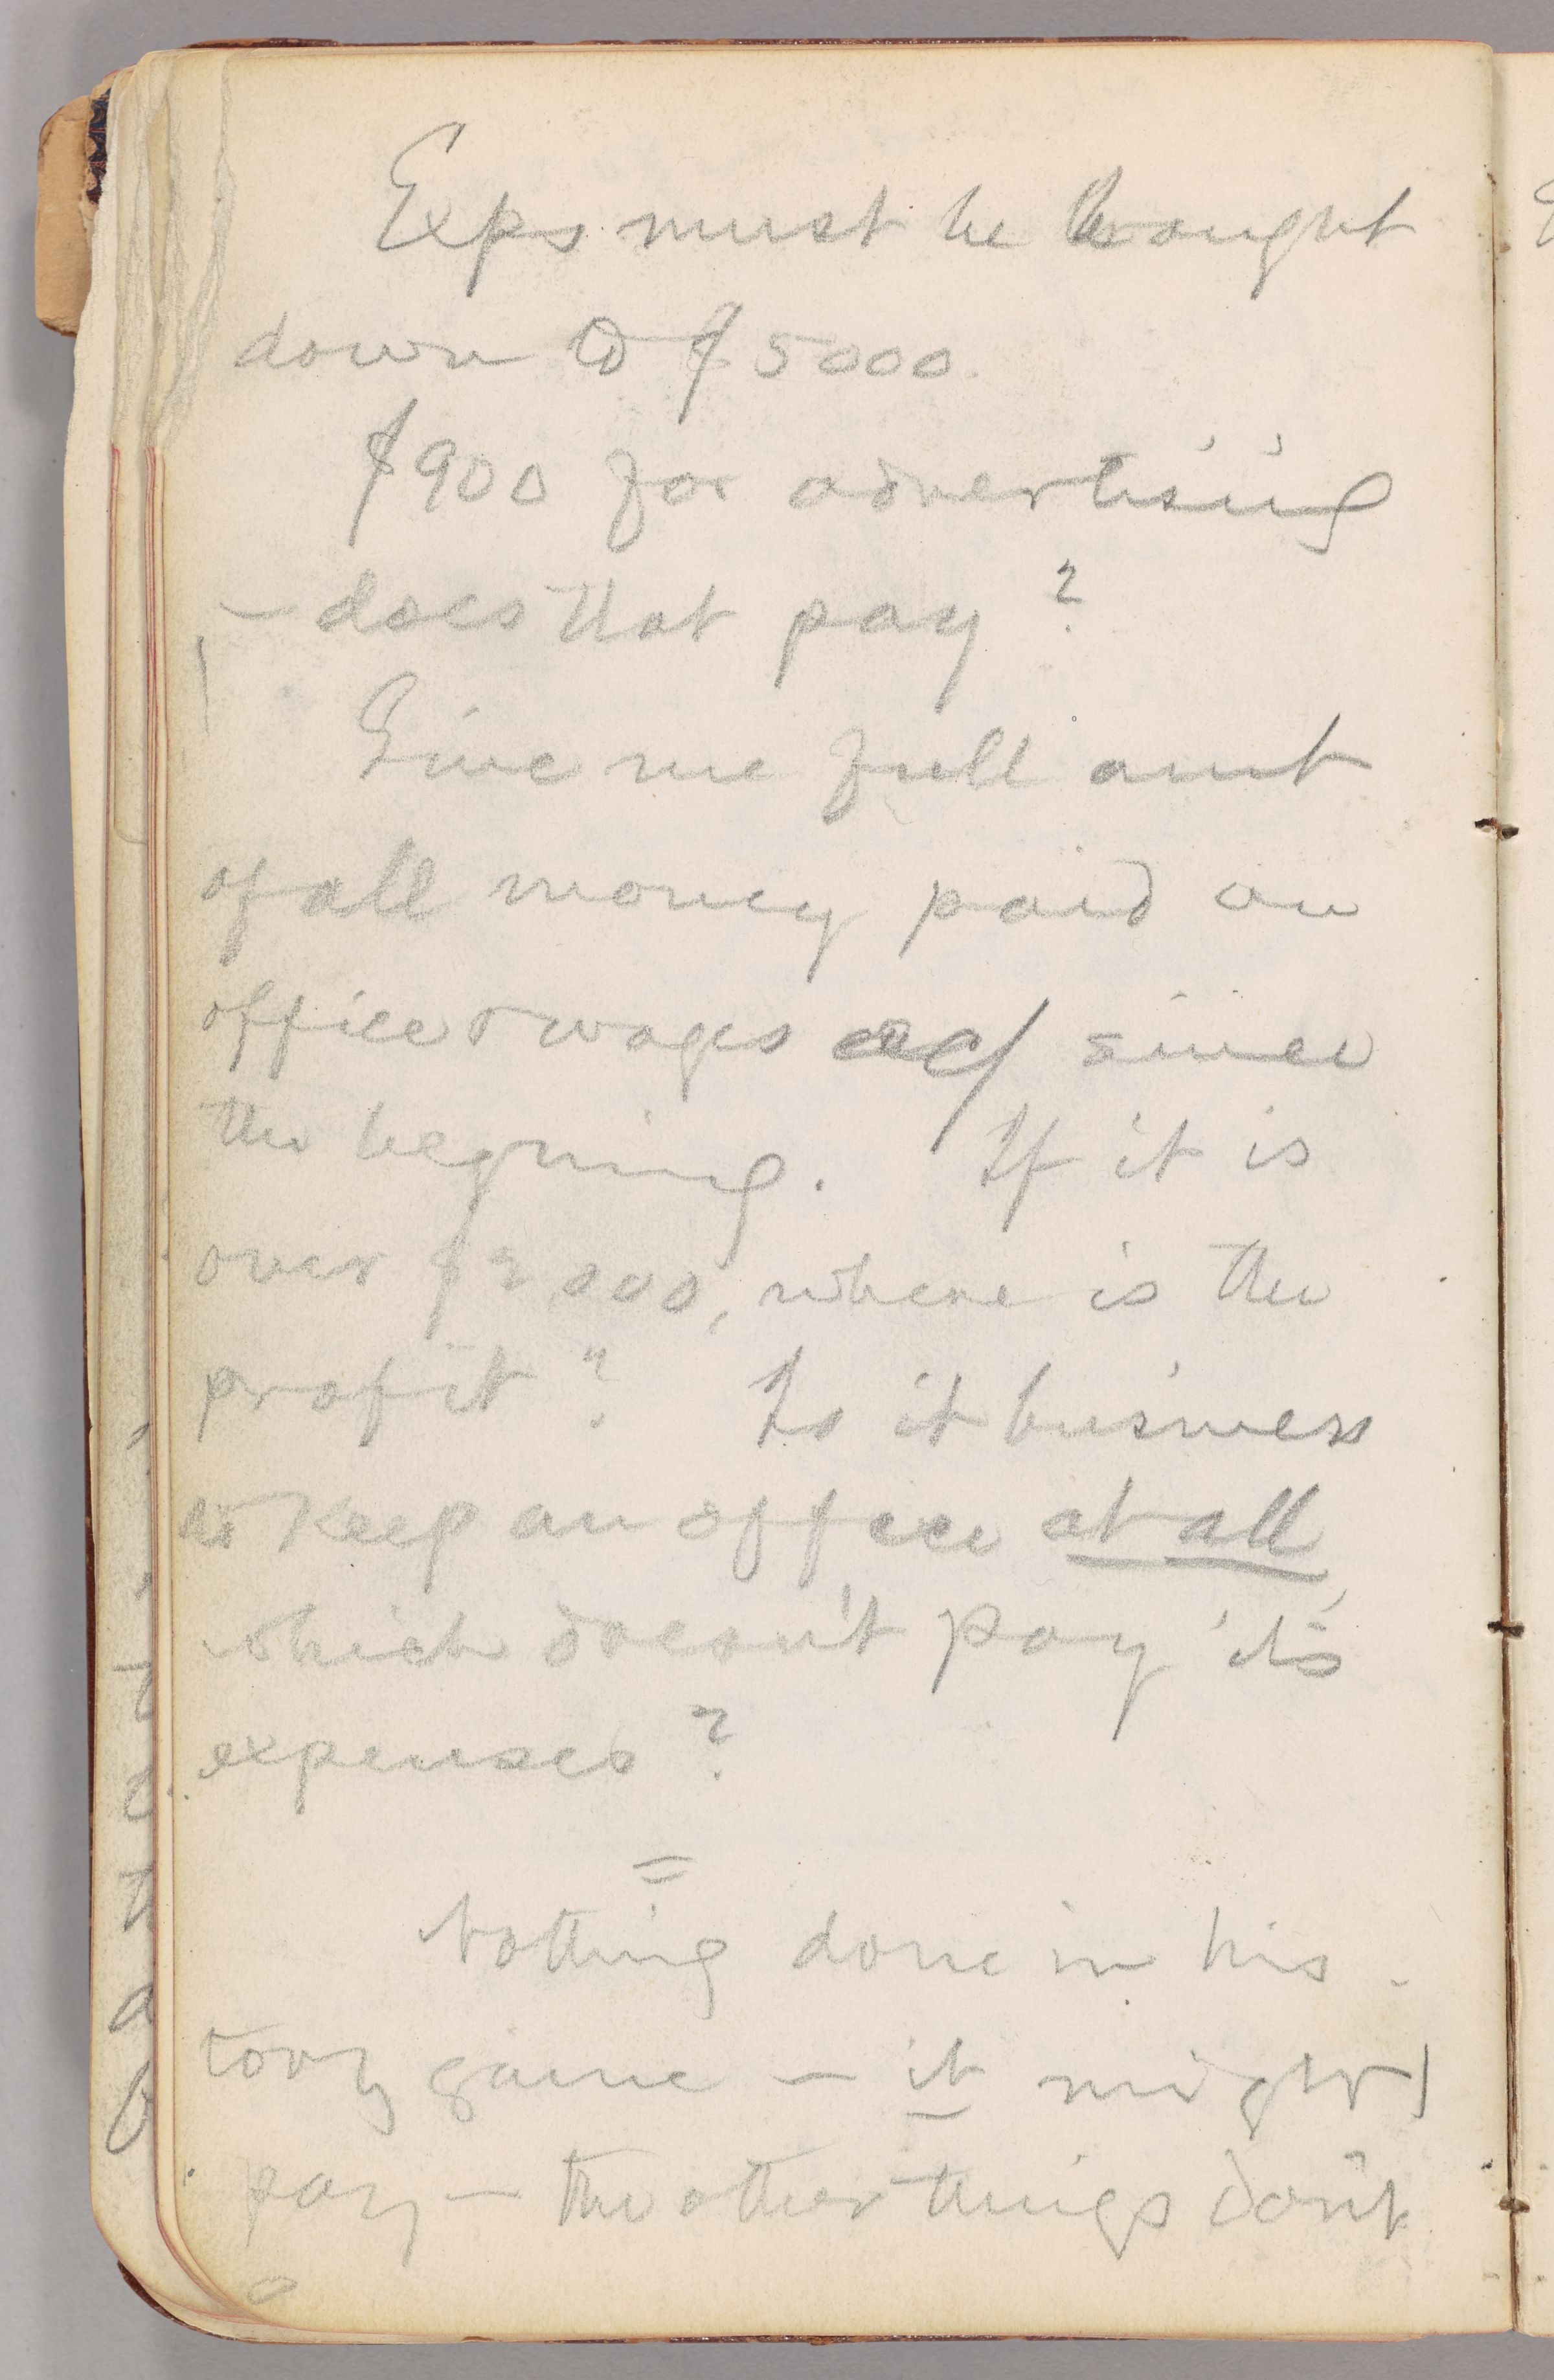 Exps must be brought
down to $5000.
$900 for advertising
— does that pay?
Give me full amt
of all money paid on
office & wages acc/ since
the begining. If it is
over $3,000, where is the
profit? Is it business
to keep an office at all,
which doesn't pay its
expenses?
=
Nothing done in his-
tory game — it might
pay — the other things don't